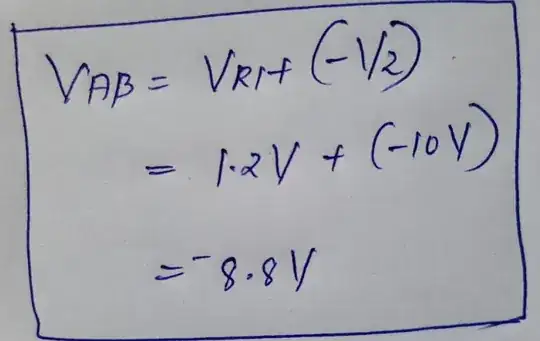 VAB = VR1 + (-V2)
= 1.2V + (-10V)
= -8.8V